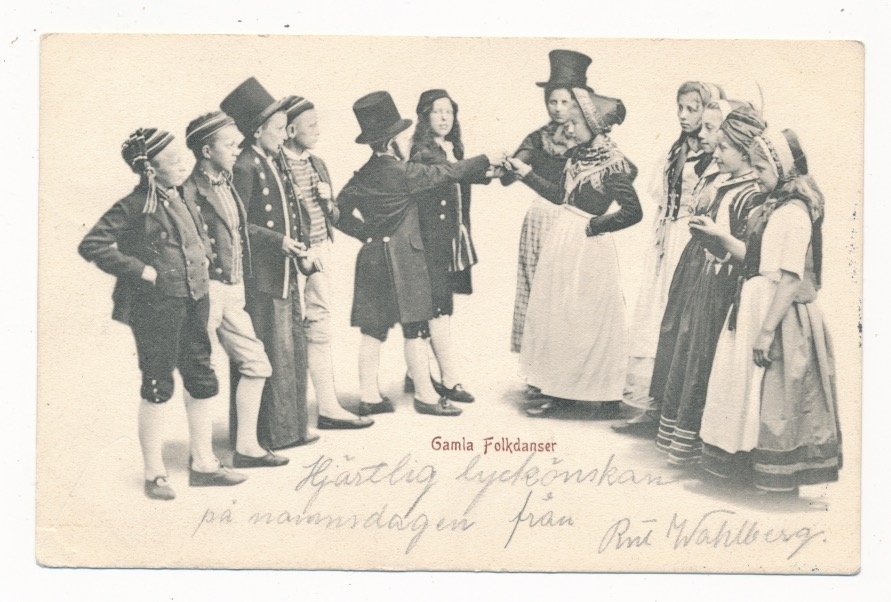 Gamla Folkdanser
Hjärtlig lyckönskan
på namnsdagen från
Rut Wahlberg.